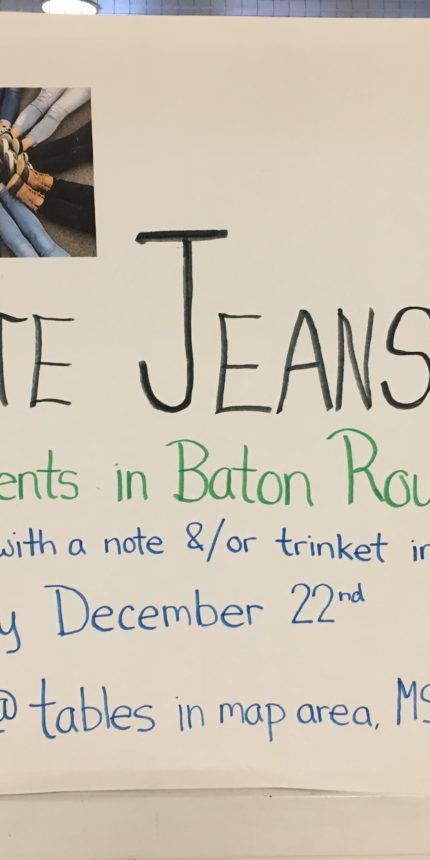 TE JEANS
ents in Baton Rou
with a note &/or trinket in
y December 22nd
@ tables in map area, MS